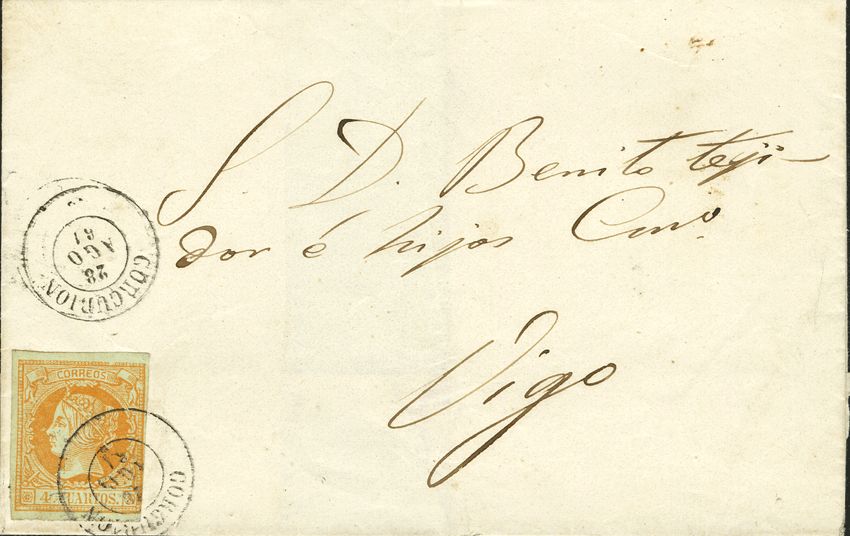 S. D. Benito teji-
dor é hijos
Vigo
CORCUBION
28
AGO
61
CORREOS
4 CUARTOS.